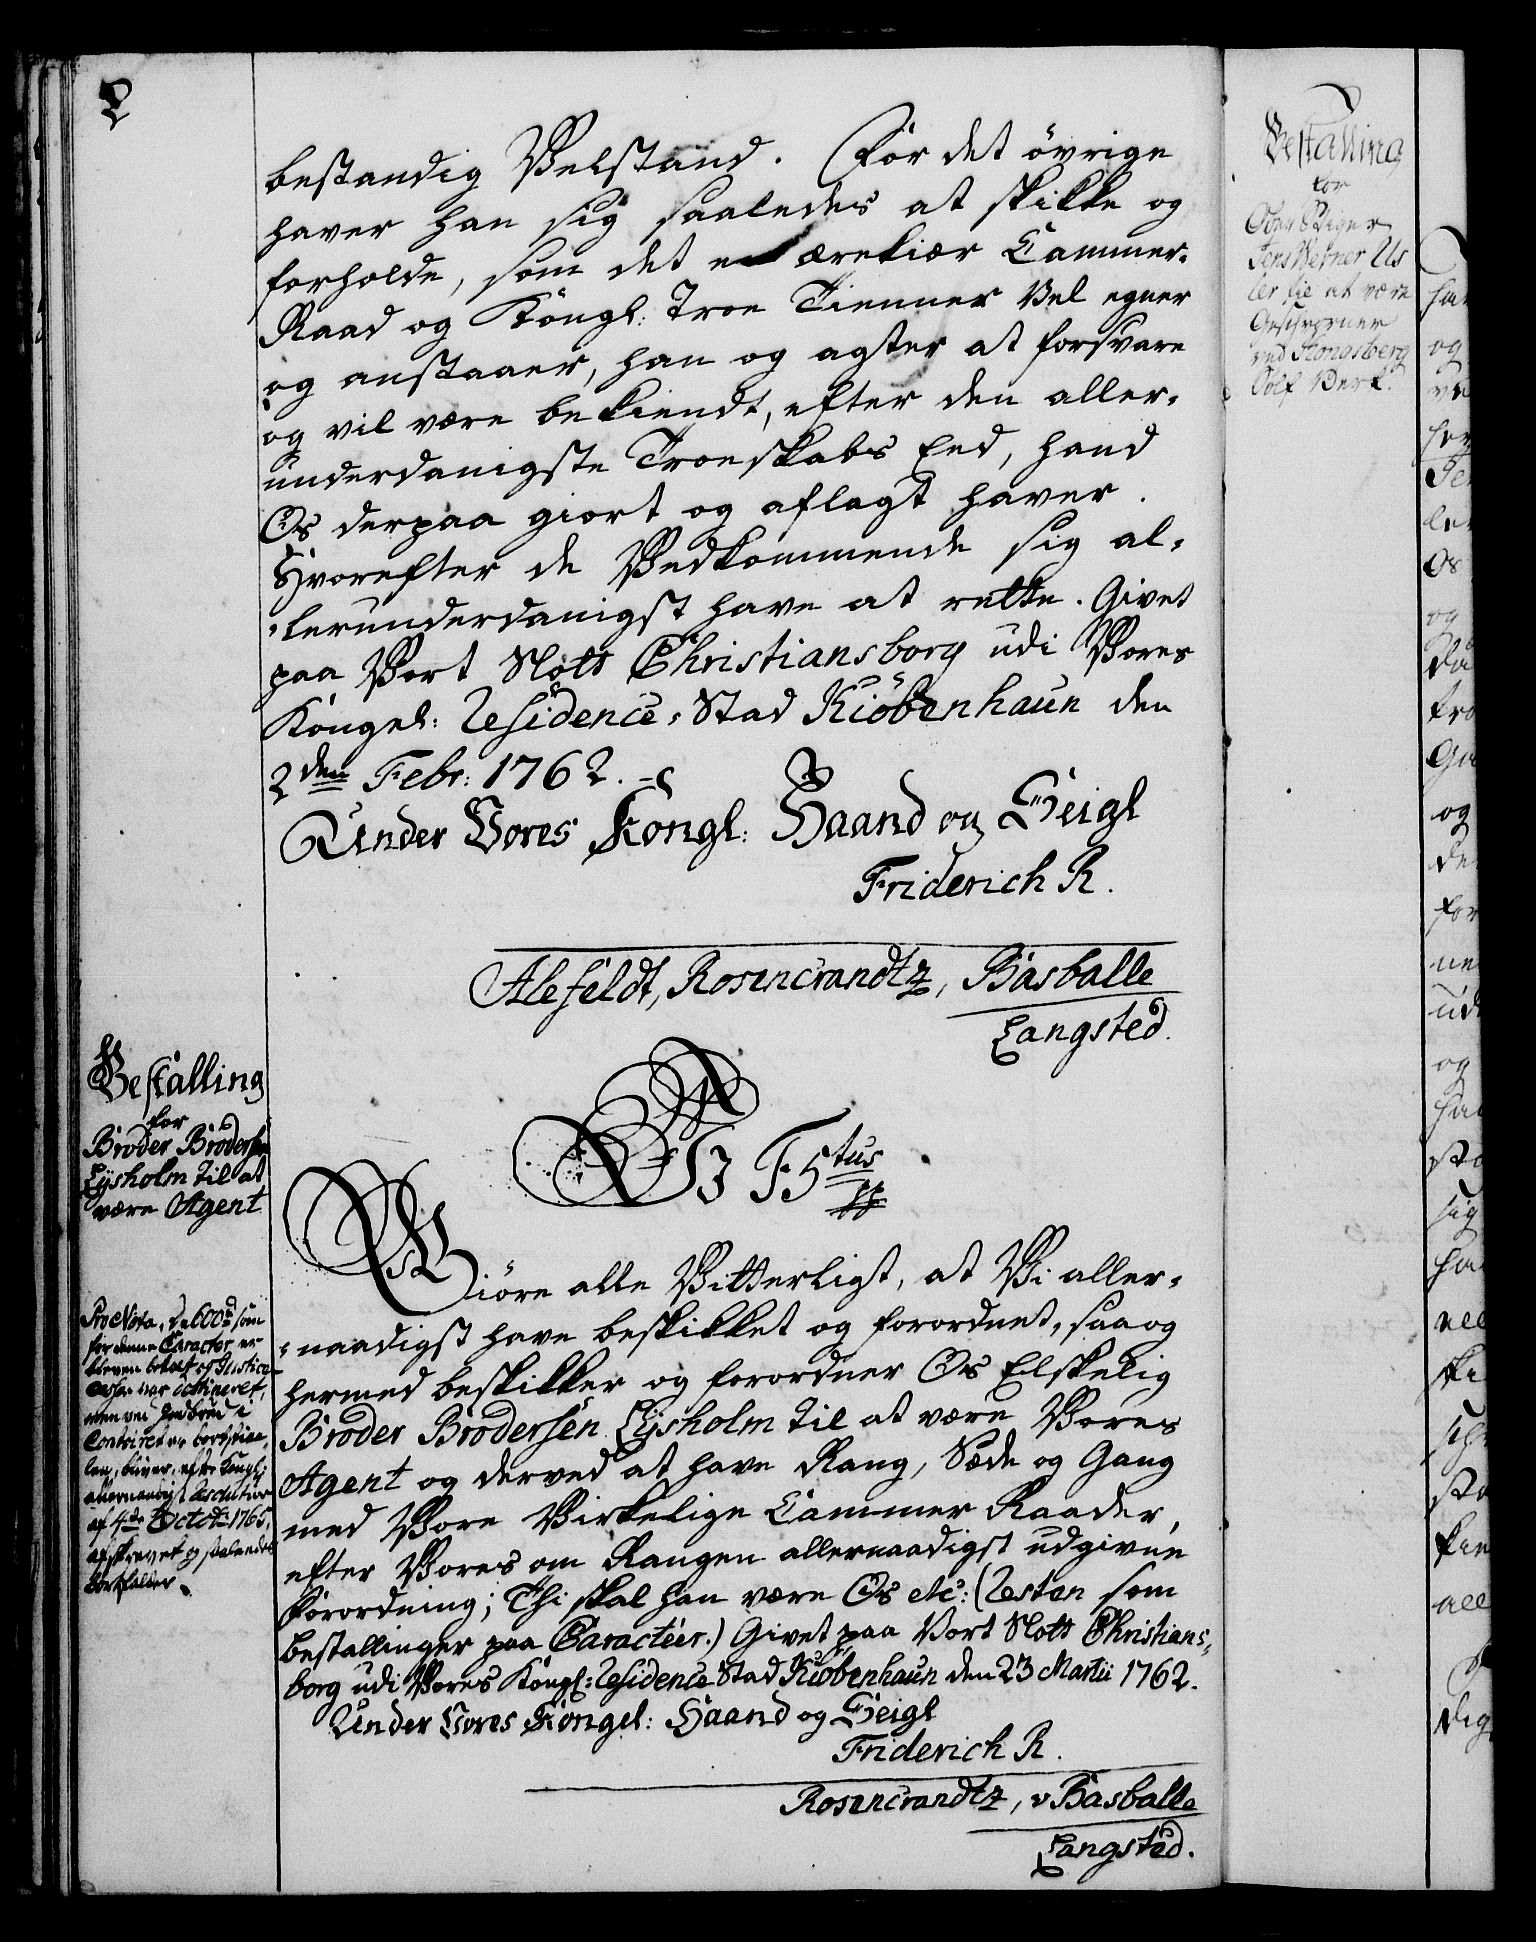 bestandig Velstand. For det övrige
haver han sig saaledes at skikke og
forholde, som det en ærekiær Cammer-
Raad og Köngl: Troe Tienner Vel egner
og anstaaer, han og agter at forsvare
og vil være bekiendt, efter den aller-
underdanigste Troeskabs Eed, hand
Os derpaa giort og aflagt haver.
Hvorefter de Vedkommende sig al-
lerunderdanigst have at rette. Givet
paa Vort Slott Christiansborg udi Vores
Köngel: Residence-Stad Kiöbenhaun den
2den Febr: 1762.
Under Vores Kongl: Haand og Seigl
Friderich R.
Alefeldt, Rosencrandtz, Basballe
Langsted.
Bestalling
for
Broder Brodersen
Lysholm til at
være Agent
Vi F5tus
pp
Giöre alle Vitterligt, at Vi aller-
naadigst have beskikket og forordnet, saa og
hermed beskikker og forordner Os Elskelig
Broder Brodersen Lysholm til at være Vores
Agent og derved at have Rang, Sæde og Gang
med Vore Virkelige Cammer Raader,
efter Vores om Rangen allernaadigst udgivne
Forordning; Thi skal han være Os etc: (Resten som
bestallinger paa Caractéer.) Givet paa Vort Slott Christians-
borg udi Vores Köngl: Residence Stad Kiöbenhaun den 23 Martii 1762.
Under Vores Kongel: Haand og Seigl
Friderich R.
Rosencrandtz, v Basballe
Langsted.
Pro Nota, de 600 som
for denne Caracter er
bleven
men ved
Contoiret er
len, bliver, efter Kongl:
allernaadigst Resolution
af 4de Octobr: 1765,
afskrevet og saaledes
bortfalder.
Bestalling
for
Ober Stiger
Jens Werner Us
ler til at være
Geschworner
ved Kongsberg
Sölf Verk.